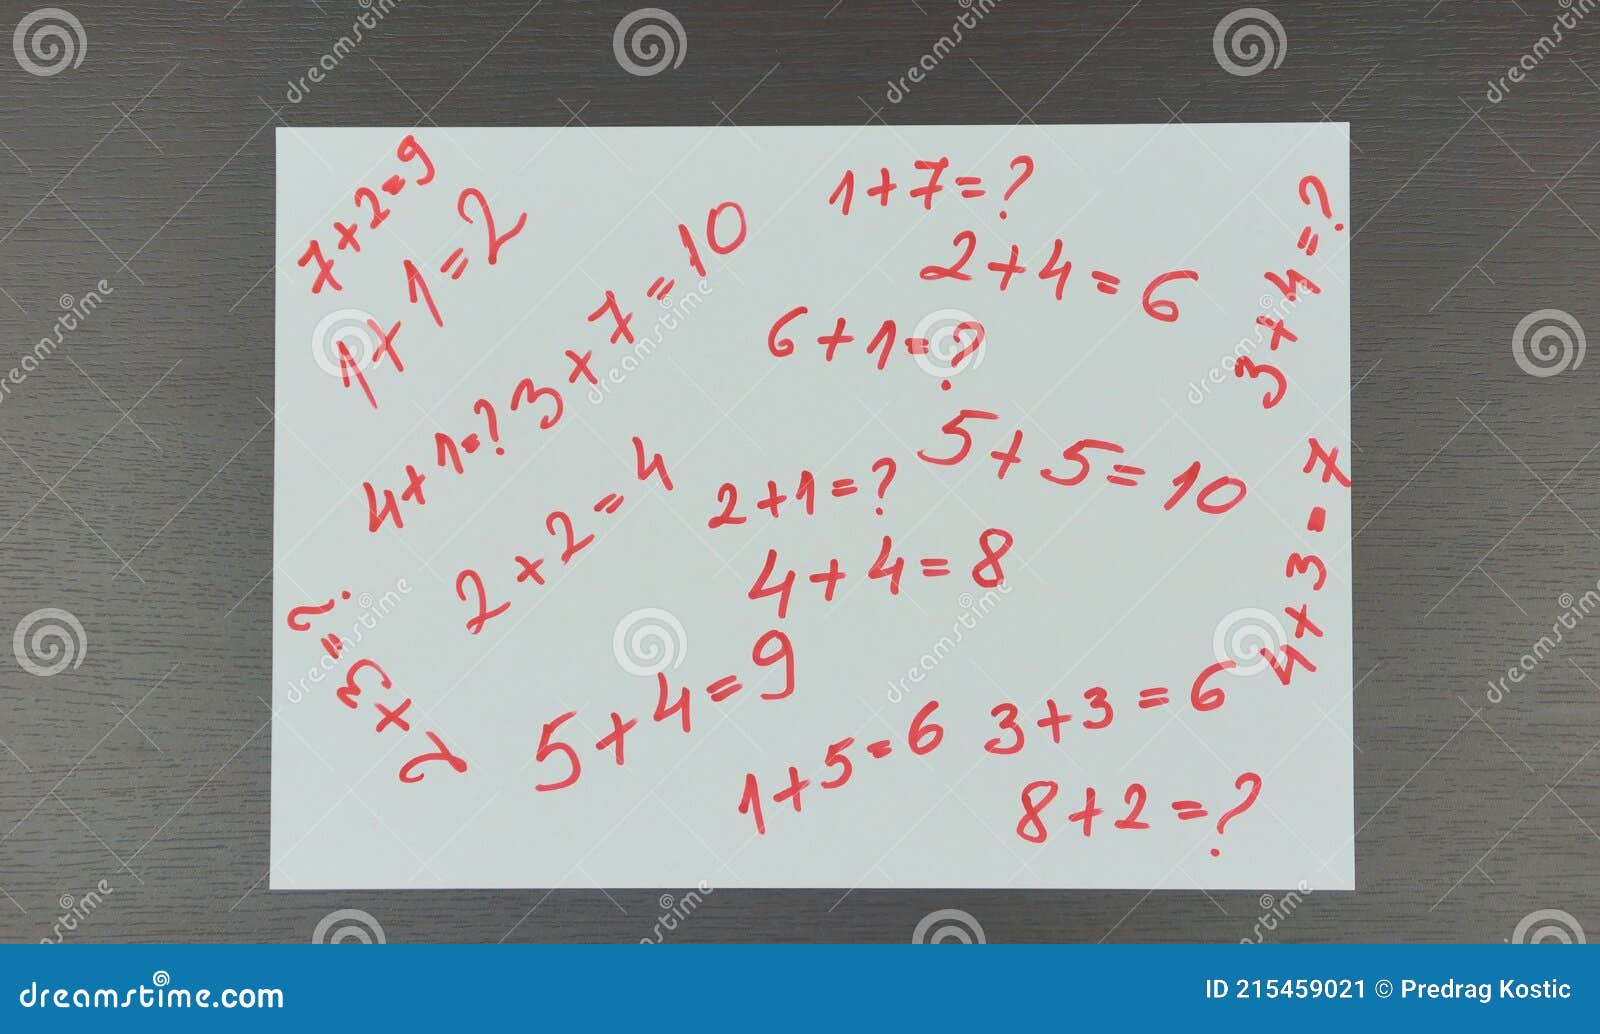 7+2=9
1+1=2
3+7=10
1+7=?
2+4=6
3+4=?
6+1=?
4+1=?
2+2=4
2+1=?
5+5=10
4+3=7
4+4=8
2+3=?
5+4=9
1+5=6
3+3=6
8+2=?
dreamstime.com
ID 215459021 © Predrag Kostic